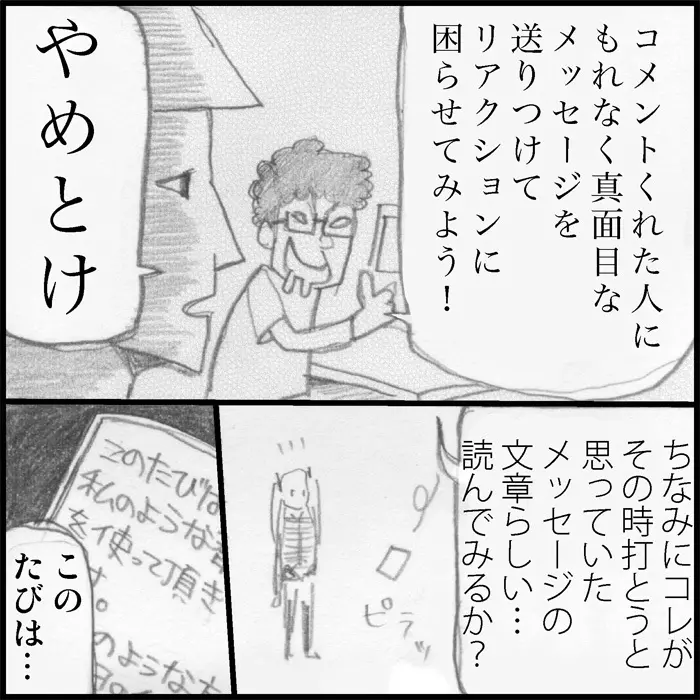 コメントくれた人に
もれなく真面目な
メッセージを
送りつけて
リアクションに
困らせてみよう！
やめとけ
ちなみにコレが
その時打とうと
思っていた
メッセージの
文章らしい…
読んでみるか？
ピラッ
このたびは
私のような
を使って頂き
す。
のような方
この
たびは…